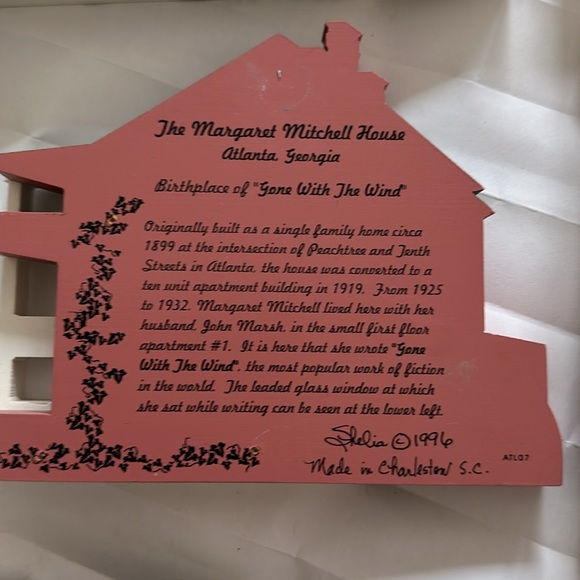 The Margaret Mitchell House
Atlanta, Georgia
Birthplace of "Gone With The Wind"
Originally built as a single family home circa
1899 at the intersection of Peachtree and Tenth
Streets in Atlanta, the house was converted to a
ten unit apartment building in 1919. From 1925
to 1932, Margaret Mitchell lived here with her
husband, John Marsh, in the small first floor
apartment #1. It is here that she wrote "Gone
With The Wind", the most popular work of fiction
in the world. The leaded glass window at which
she sat while writing can be seen at the lower left.
Shelia ©1996
Made in Charleston S.C.
ATL07